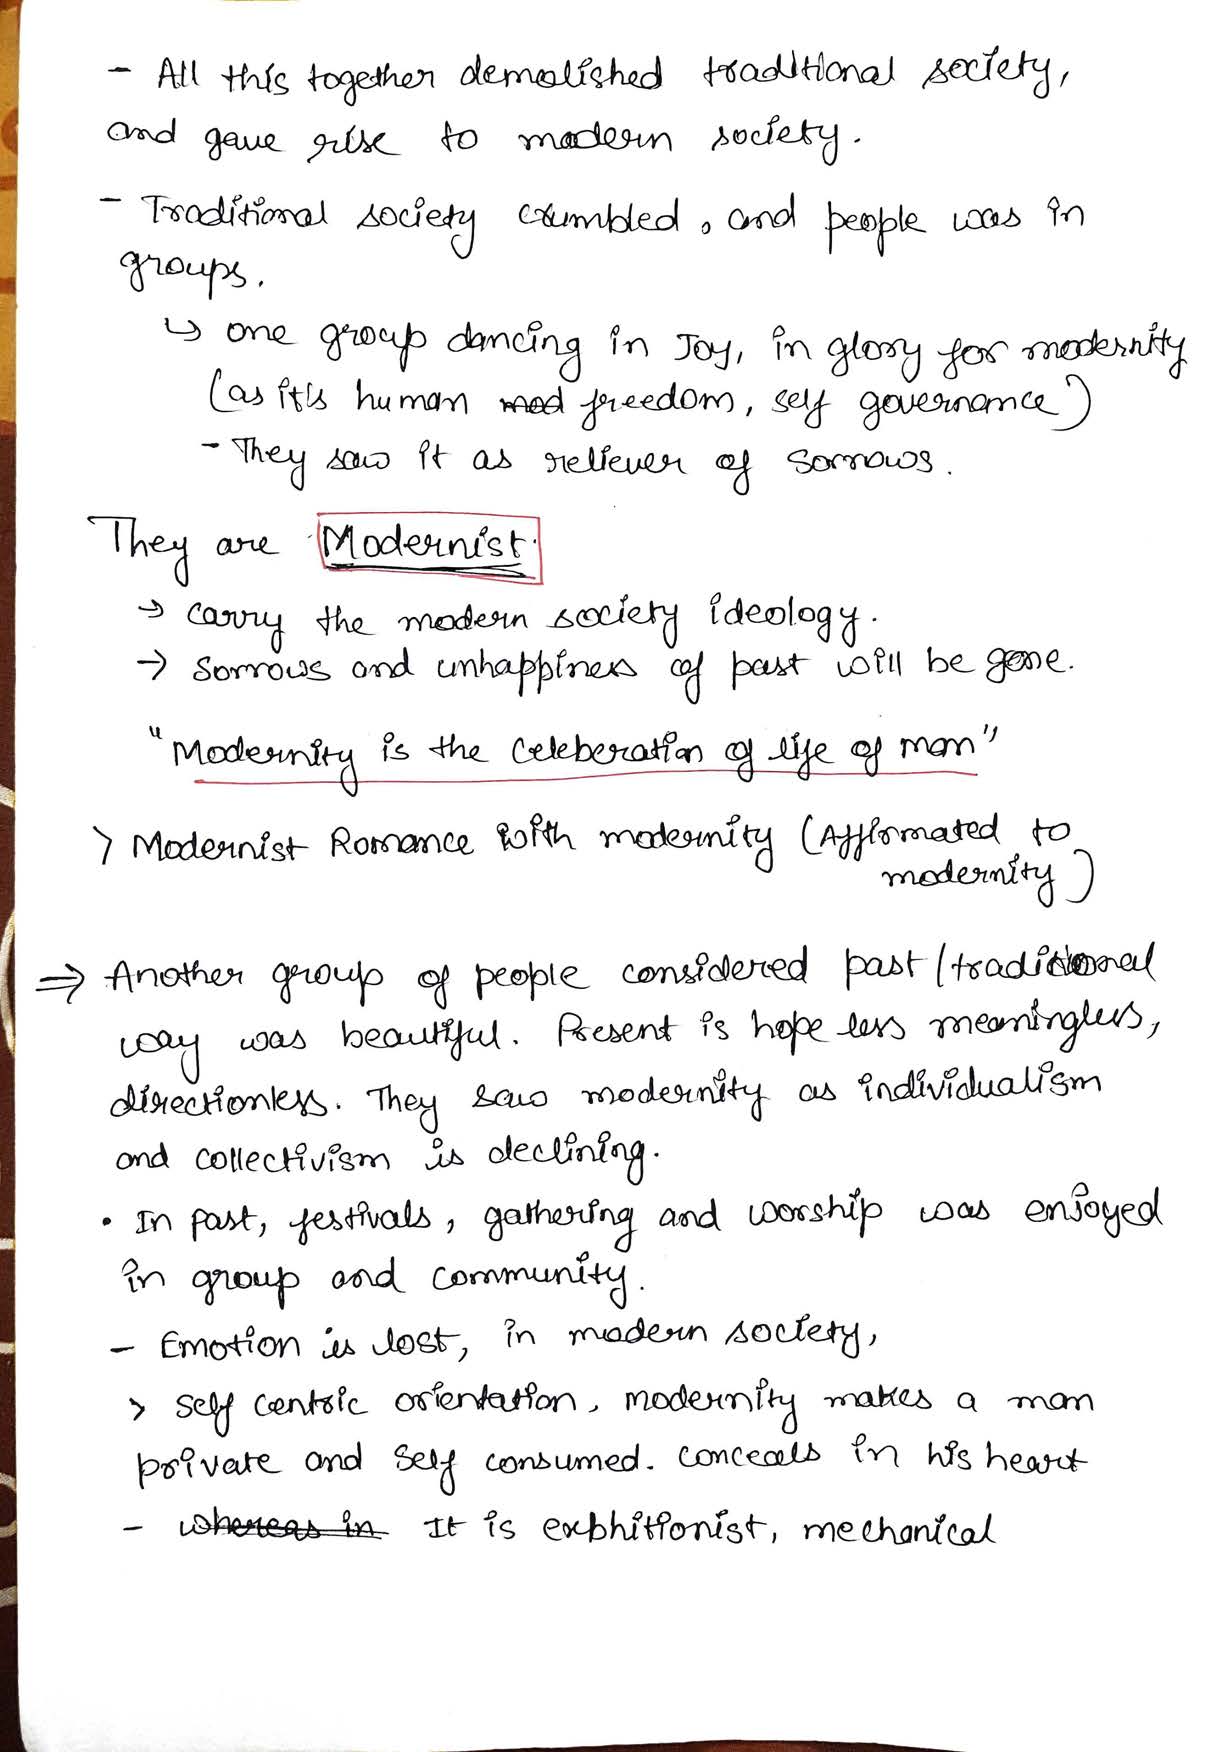 - All this together demolished traditional society,
and gave rise to modern society.
- Traditional society crumbled, and people was in
groups.
↳ one group dancing in Joy, in glory for modernity
(as it's human mod freedom, self governance)
- They saw it as reliever of sorrows.
They are Modernist.
→ carry the modern society ideology.
→ sorrows and unhappiness of past will be gone.
"Modernity is the celeberation of life of man"
> Modernist Romance with modernity (Affirmated to
modernity)
⇒ Another group of people considered past/traditional
way was beautiful. Present is hope less meaningless,
directionless. They saw modernity as individualism
and collectivism is declining.
• In past, festivals, gathering and worship was enjoyed
in group and community.
- Emotion is lost, in modern society,
> self centric orientation, modernity makes a man
private and self consumed. conceals in his heart
- whereas in It is exbhitionist, mechanical